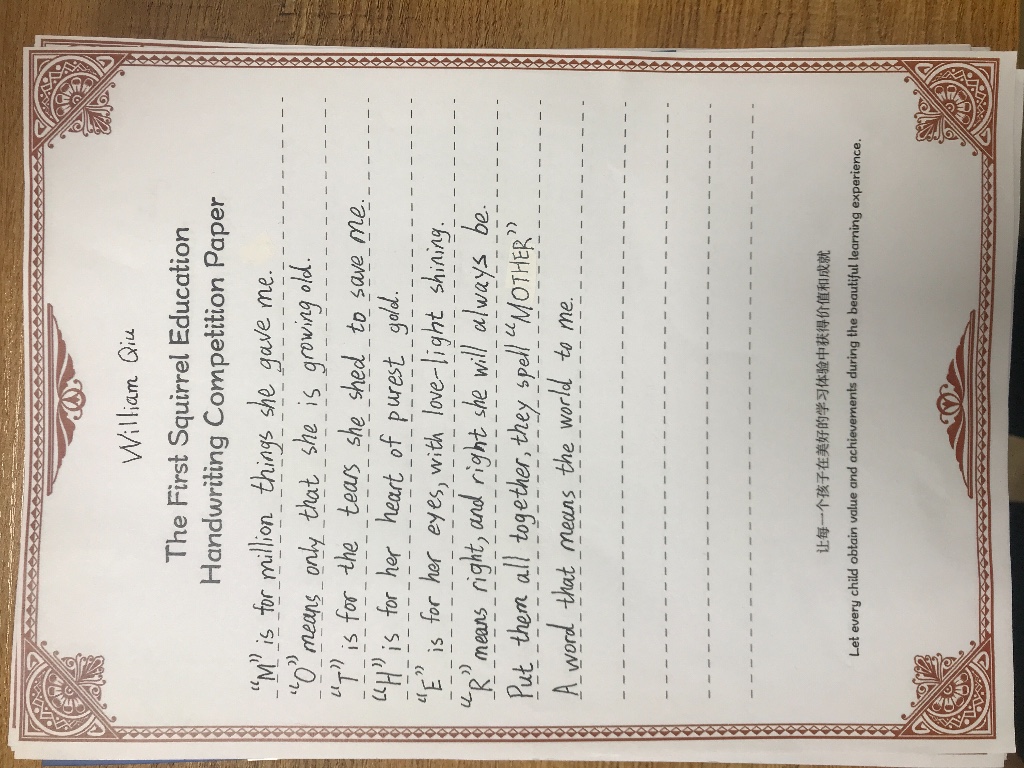 William Qiu
The First Squirrel Education
Handwriting Competition Paper
“M” is for million things she gave me.
“O” means only that she is growing old.
“T” is for the tears she shed to save me.
“H” is for her heart of purest gold.
“E” is for her eyes, with love-light shining.
“R” means right, and right she will always be.
Put them all together, they spell “MOTHER”
A word that means the world to me.
让每一个孩子在美好的学习体验中获得价值和成就
Let every child obtain value and achievements during the beautiful learning experience.